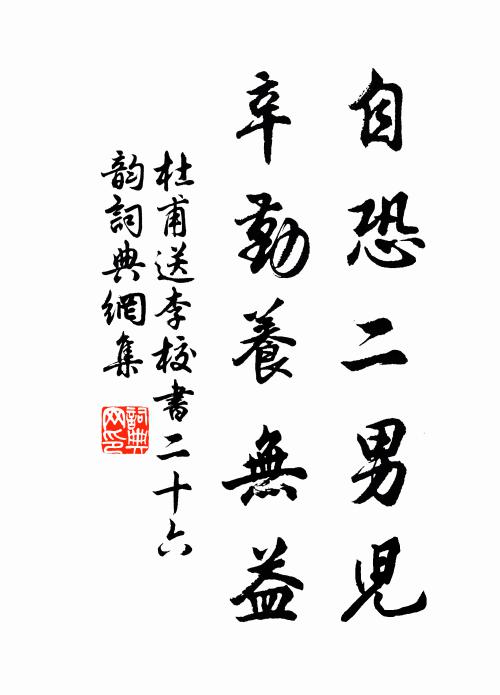 自恐二男兒
辛勤養無益
杜甫送李校書二十六
韵詞典網集
詞典網印